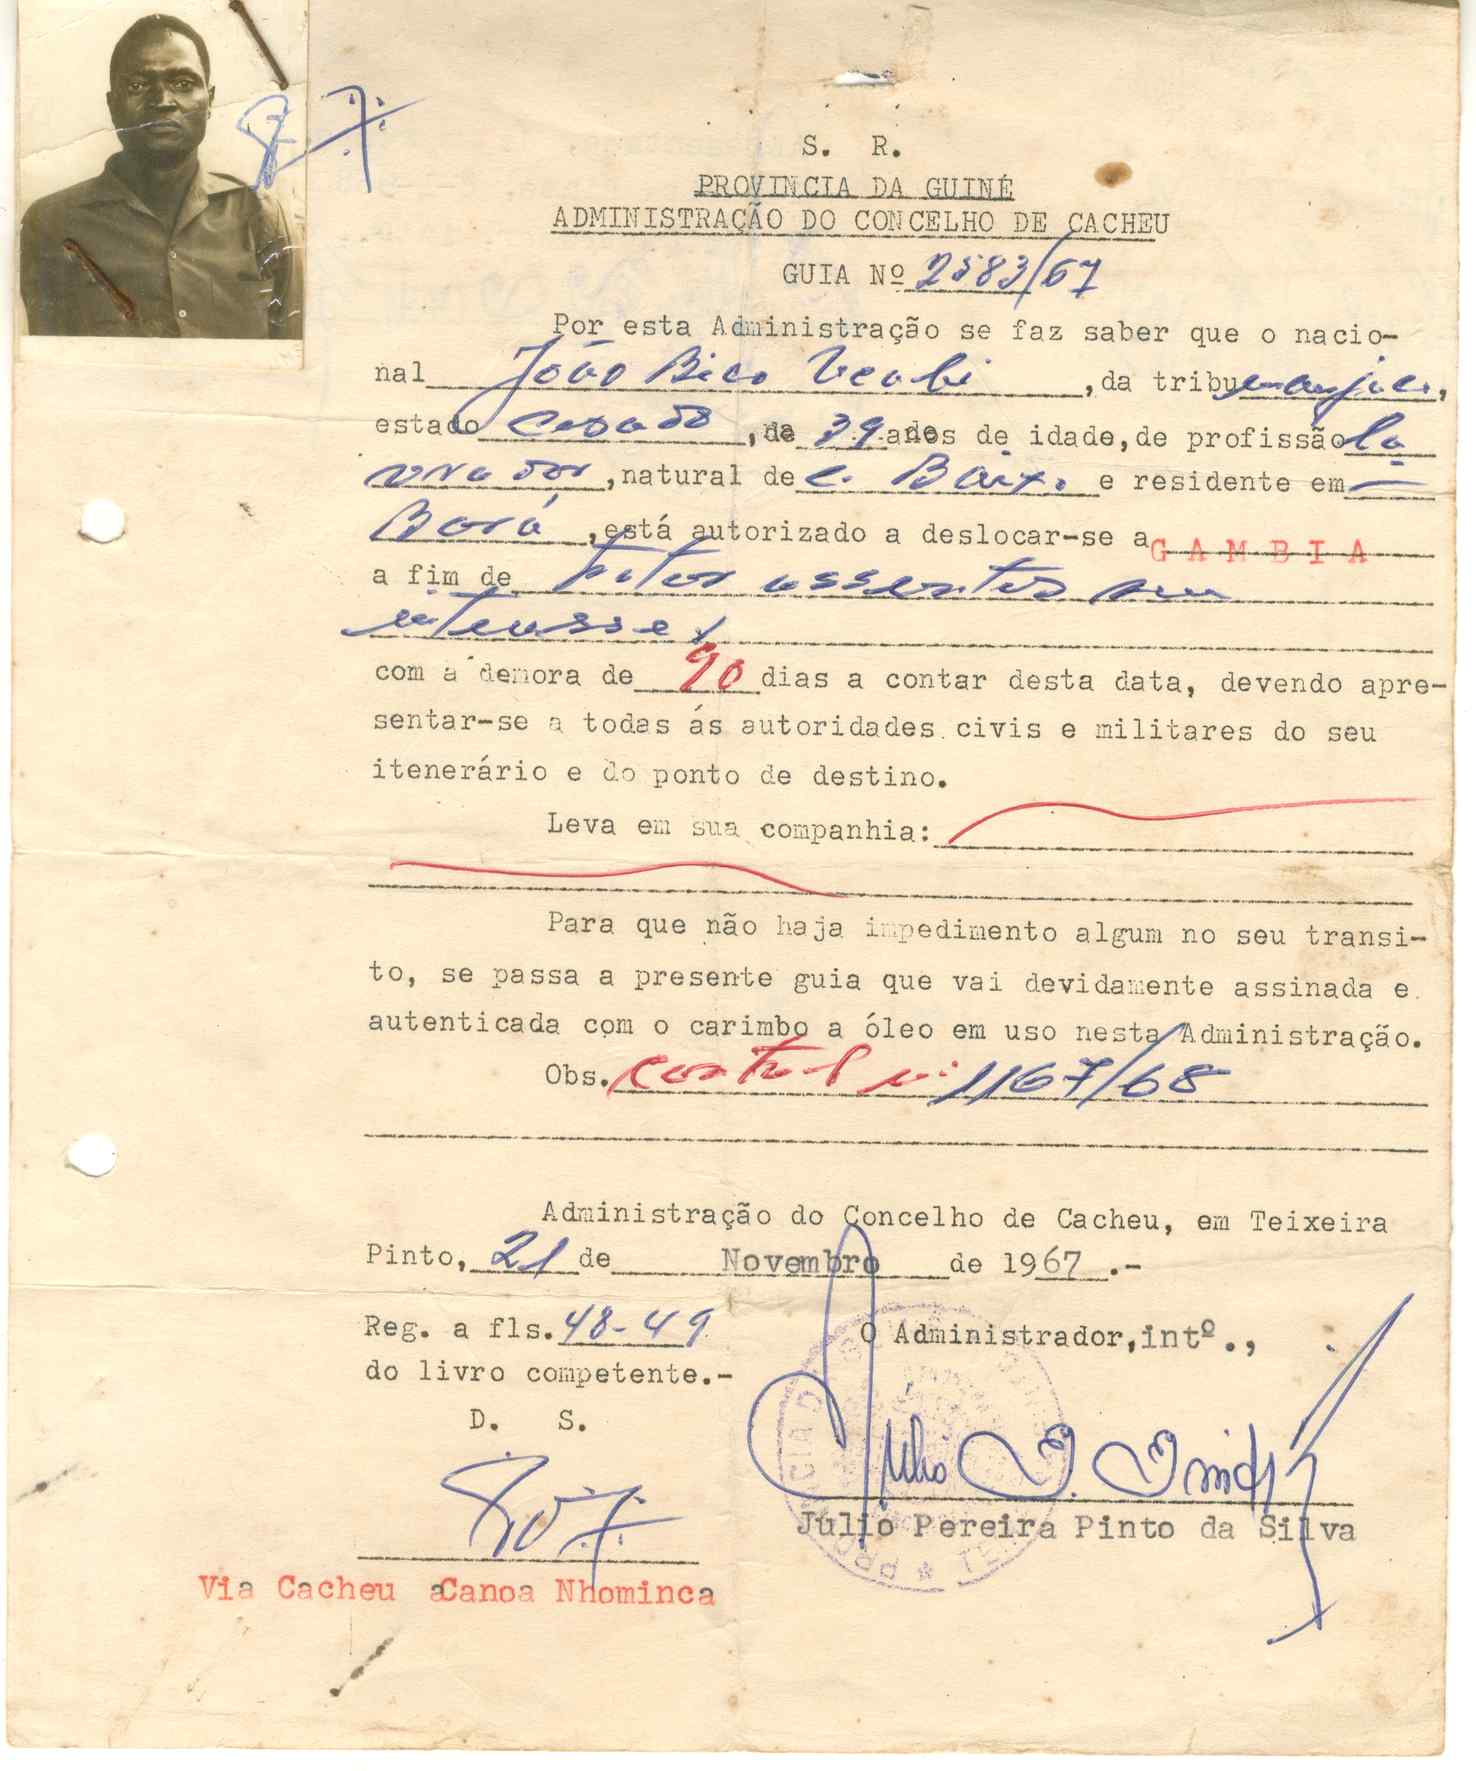 S. R.
PROVINCIA DA GUINÉ
ADMINISTRAÇÃO DO CONCELHO DE CACHEU
GUIA Nº 2583/67
Por esta Administração se faz saber que o nacio-
nal João Bico, da tribu manjaca,
estado casado, de 39 anos de idade, de profissão la
vrador, natural de C. Baix. e residente em
Bará, está autorizado a deslocar-se a GAMBIA
a fim de tratar assuntos seu
interesse
com a demora de 90 dias a contar desta data, devendo apre-
sentar-se a todas ás autoridades civis e militares do seu
itenerário e do ponto de destino.
Leva em sua companhia:
Para que não haja impedimento algum no seu transi-
to, se passa a presente guia que vai devidamente assinada e
autenticada com o carimbo a óleo em uso nesta Administração.
Obs. control nº 1167/68
Administração do Concelho de Cacheu, em Teixeira
Pinto, 21 de Novembro de 1967.-
Reg. a fls. 48-49
do livro competente.-
O Administrador, intº.,
D. S.
Júlio Pereira Pinto da Silva
Via Cacheu a Canoa Nhominca